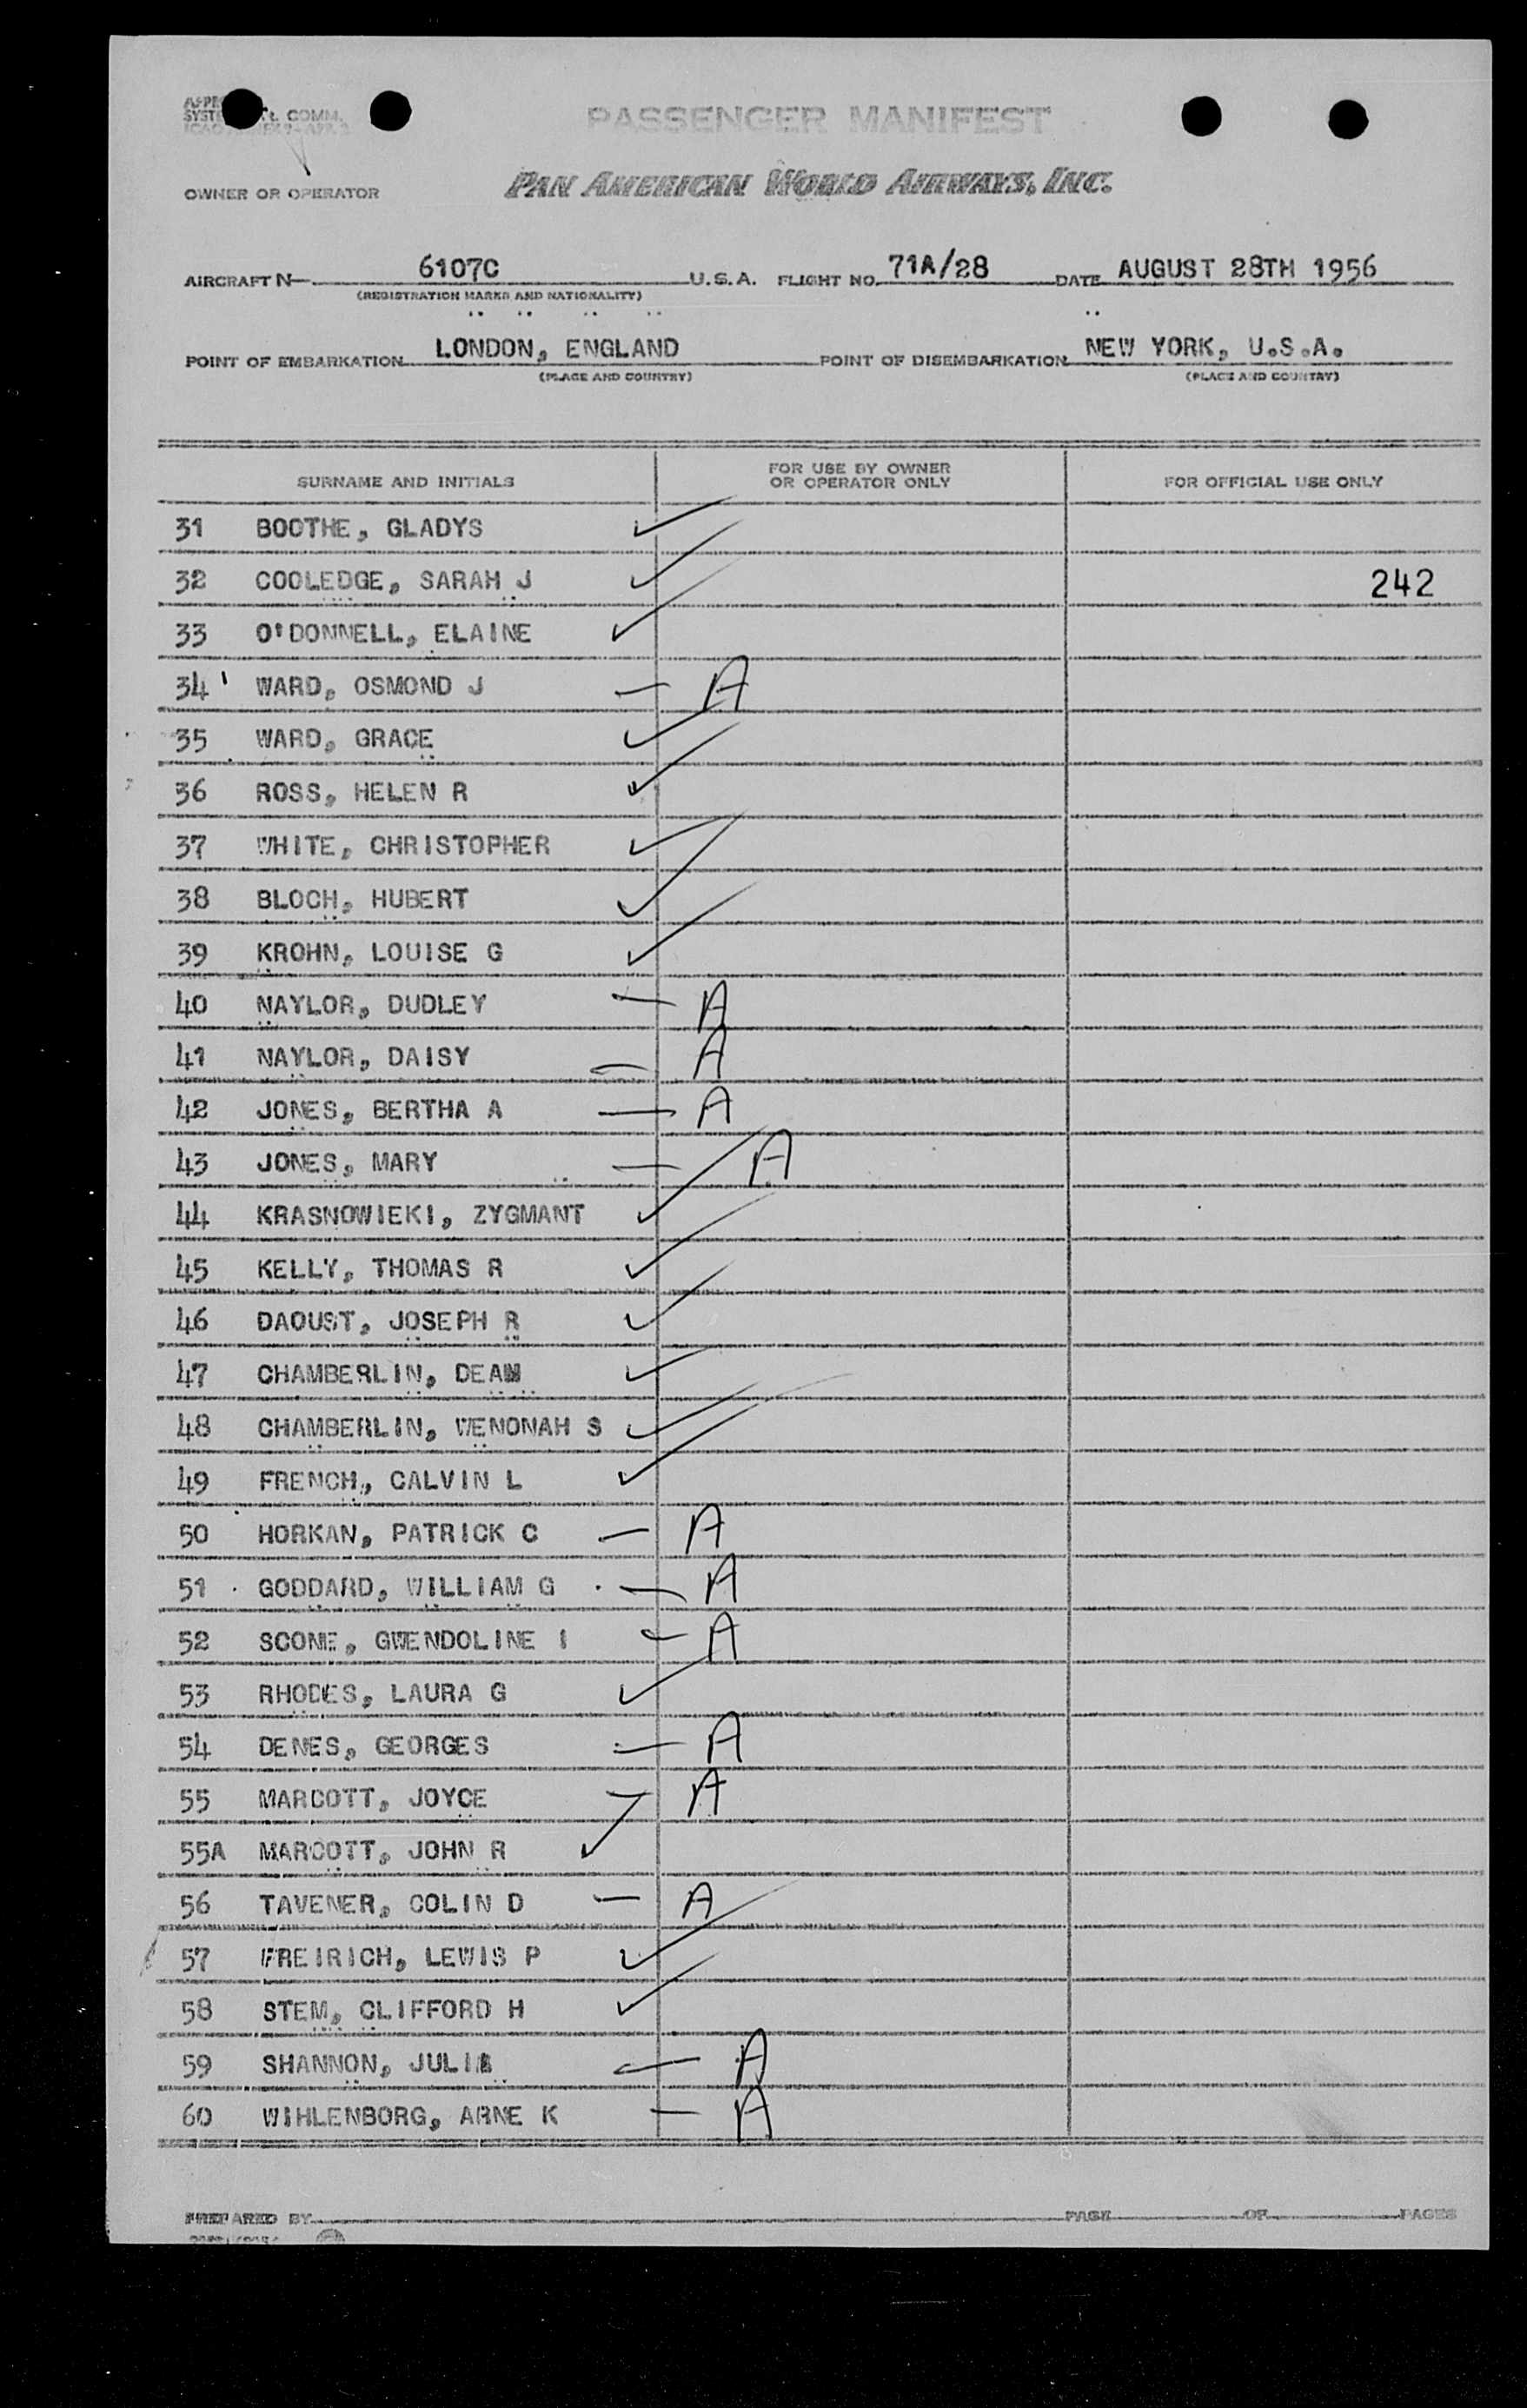 PASSENGER MANIFEST
OWNER OR OPERATOR PAN AMERICAN WORLD AIRWAYS, INC.
AIRCRAFT N 6107C U.S.A. FLIGHT NO. 71A/28 DATE AUGUST 28TH 1956
(REGISTRATION MARKS AND NATIONALITY)
POINT OF EMBARKATION LONDON, ENGLAND POINT OF DISEMBARKATION NEW YORK, U.S.A.
(PLACE AND COUNTRY) (PLACE AND COUNTRY)
SURNAME AND INITIALS FOR USE BY OWNER OR OPERATOR ONLY FOR OFFICIAL USE ONLY
31 BOOTHE, GLADYS ✓
32 COOLEDGE, SARAH J ✓ 242
33 O'DONNELL, ELAINE ✓
34 WARD, OSMOND J — A
35 WARD, GRACE ✓
36 ROSS, HELEN R ✓
37 WHITE, CHRISTOPHER ✓
38 BLOCH, HUBERT ✓
39 KROHN, LOUISE G ✓
40 NAYLOR, DUDLEY — A
41 NAYLOR, DAISY — A
42 JONES, BERTHA A — A
43 JONES, MARY — A
44 KRASNOWIEKI, ZYGMANT ✓
45 KELLY, THOMAS R ✓
46 DAOUST, JOSEPH R ✓
47 CHAMBERLIN, DEAN ✓
48 CHAMBERLIN, WENONAH S ✓
49 FRENCH, CALVIN L ✓
50 HORKAN, PATRICK C — A
51 GODDARD, WILLIAM G — A
52 SCONE, GWENDOLINE I — A
53 RHODES, LAURA G ✓
54 DENES, GEORGES — A
55 MARCOTT, JOYCE — A
55A MARCOTT, JOHN R ✓
56 TAVENER, COLIN D — A
57 FREIRICH, LEWIS P ✓
58 STEM, CLIFFORD H ✓
59 SHANNON, JULIA — A
60 WIHLENBORG, ARNE K — A
PREPARED BY PAGE OF PAGES